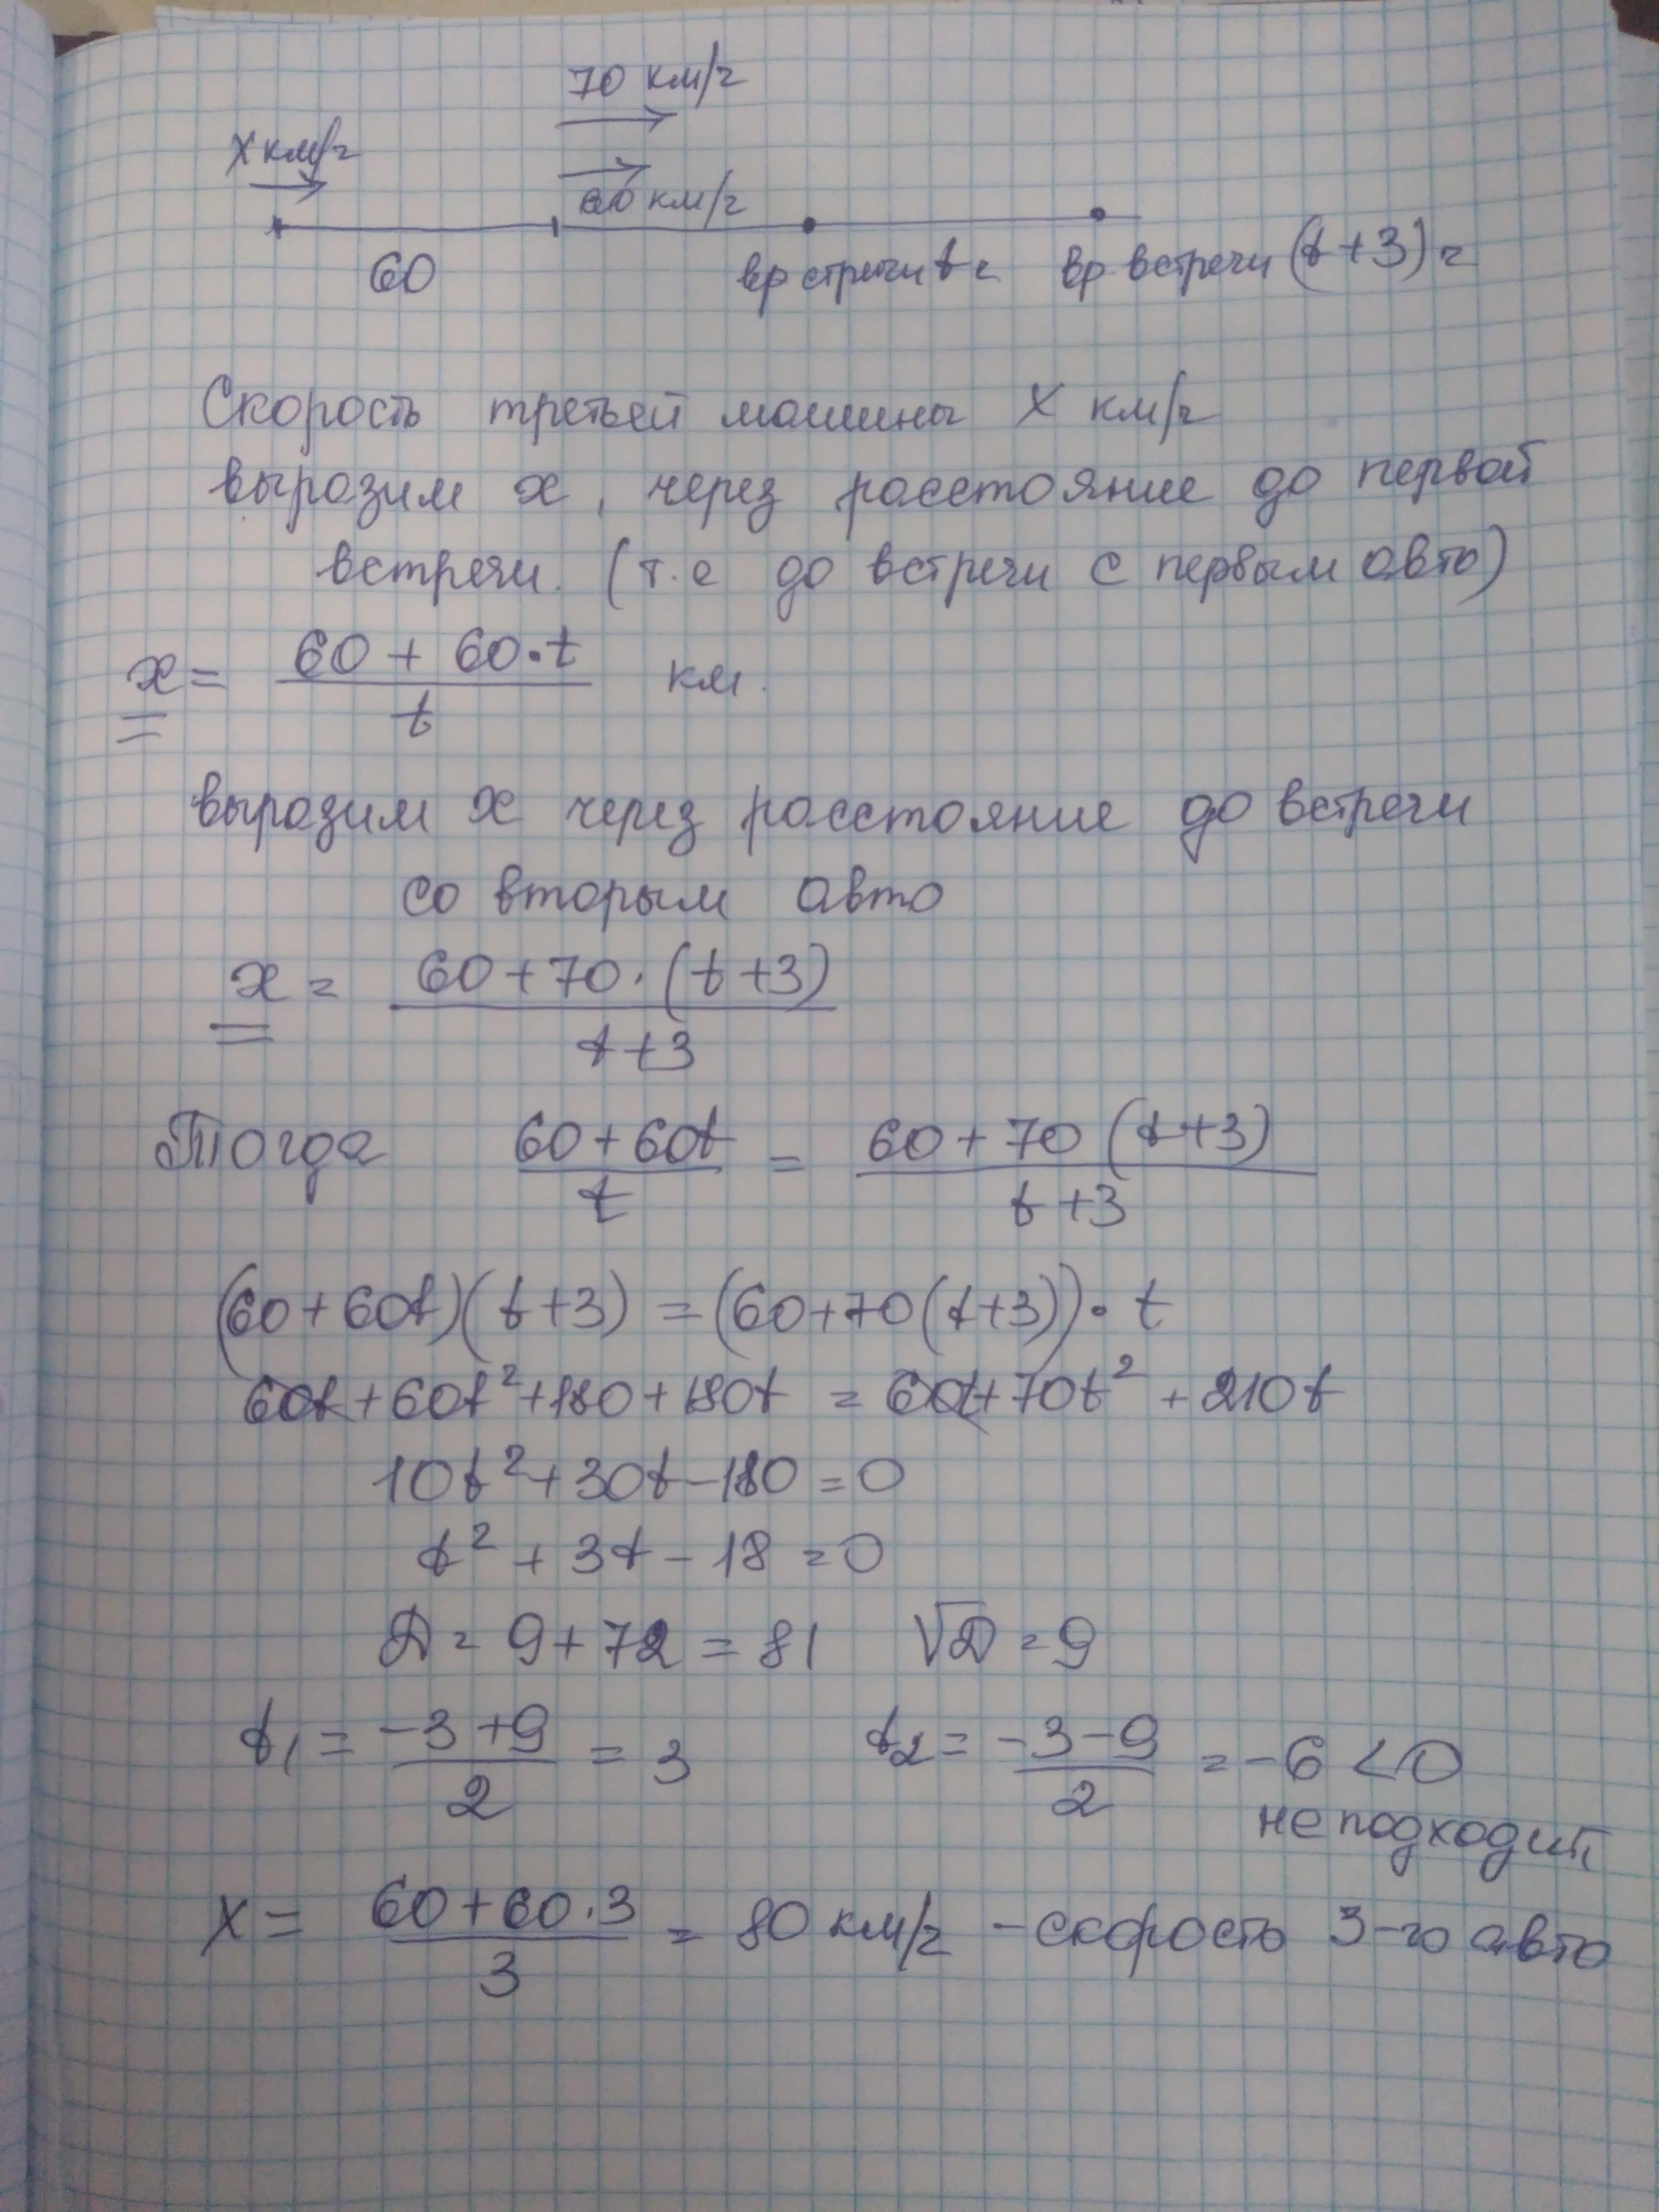 70 км/ч
x км/ч
60 км/ч
60
вр стречи t ч вр. встречи (t+3) ч
Скорость третьей машины x км/ч
выразим x, через расстояние до первой
встречи. (т.е до встречи с первым авто)
x = (60 + 60·t)/t км.
выразим x через расстояние до встречи
со вторым авто
x = (60+70·(t+3))/(t+3)
Тогда (60+60t)/t = (60+70(t+3))/(t+3)
(60+60t)(t+3) = (60+70(t+3))·t
60t+60t²+180+180t = 60t+70t²+210t
10t²+30t-180=0
t²+3t-18=0
D=9+72=81 √D=9
t₁=(-3+9)/2=3 t₂=(-3-9)/2=-6<0
не подходит
x=(60+60·3)/3=80 км/ч -скорость 3-го авто